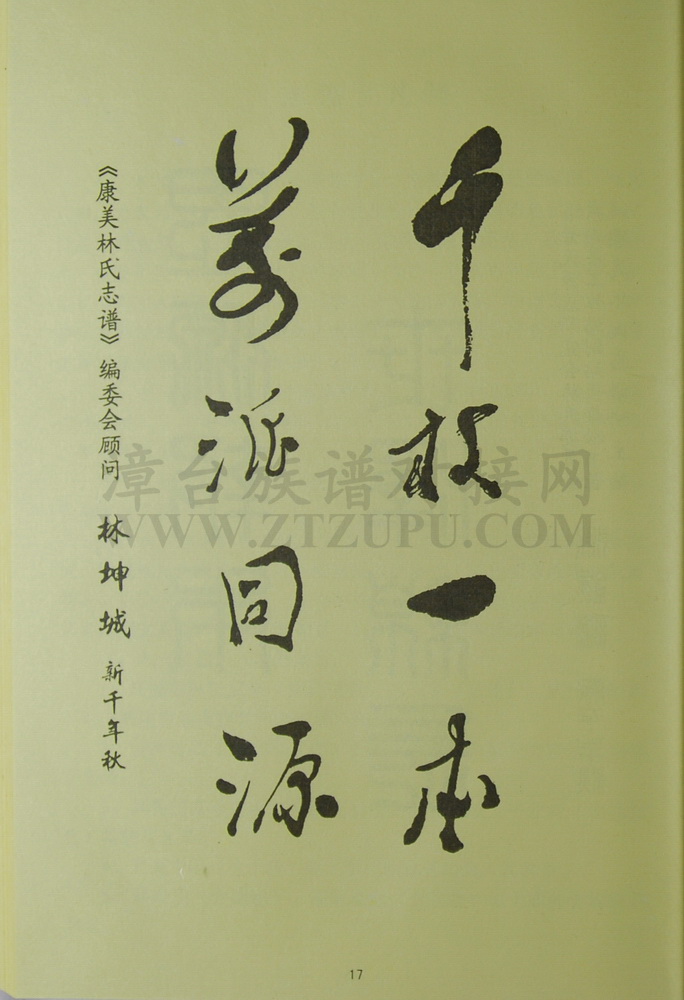 千枝一本
萬派同源
《康美林氏志谱》编委会顾问 林坤城 新千年秋
漳台族谱对接网
WWW.ZTZUPU.COM
17